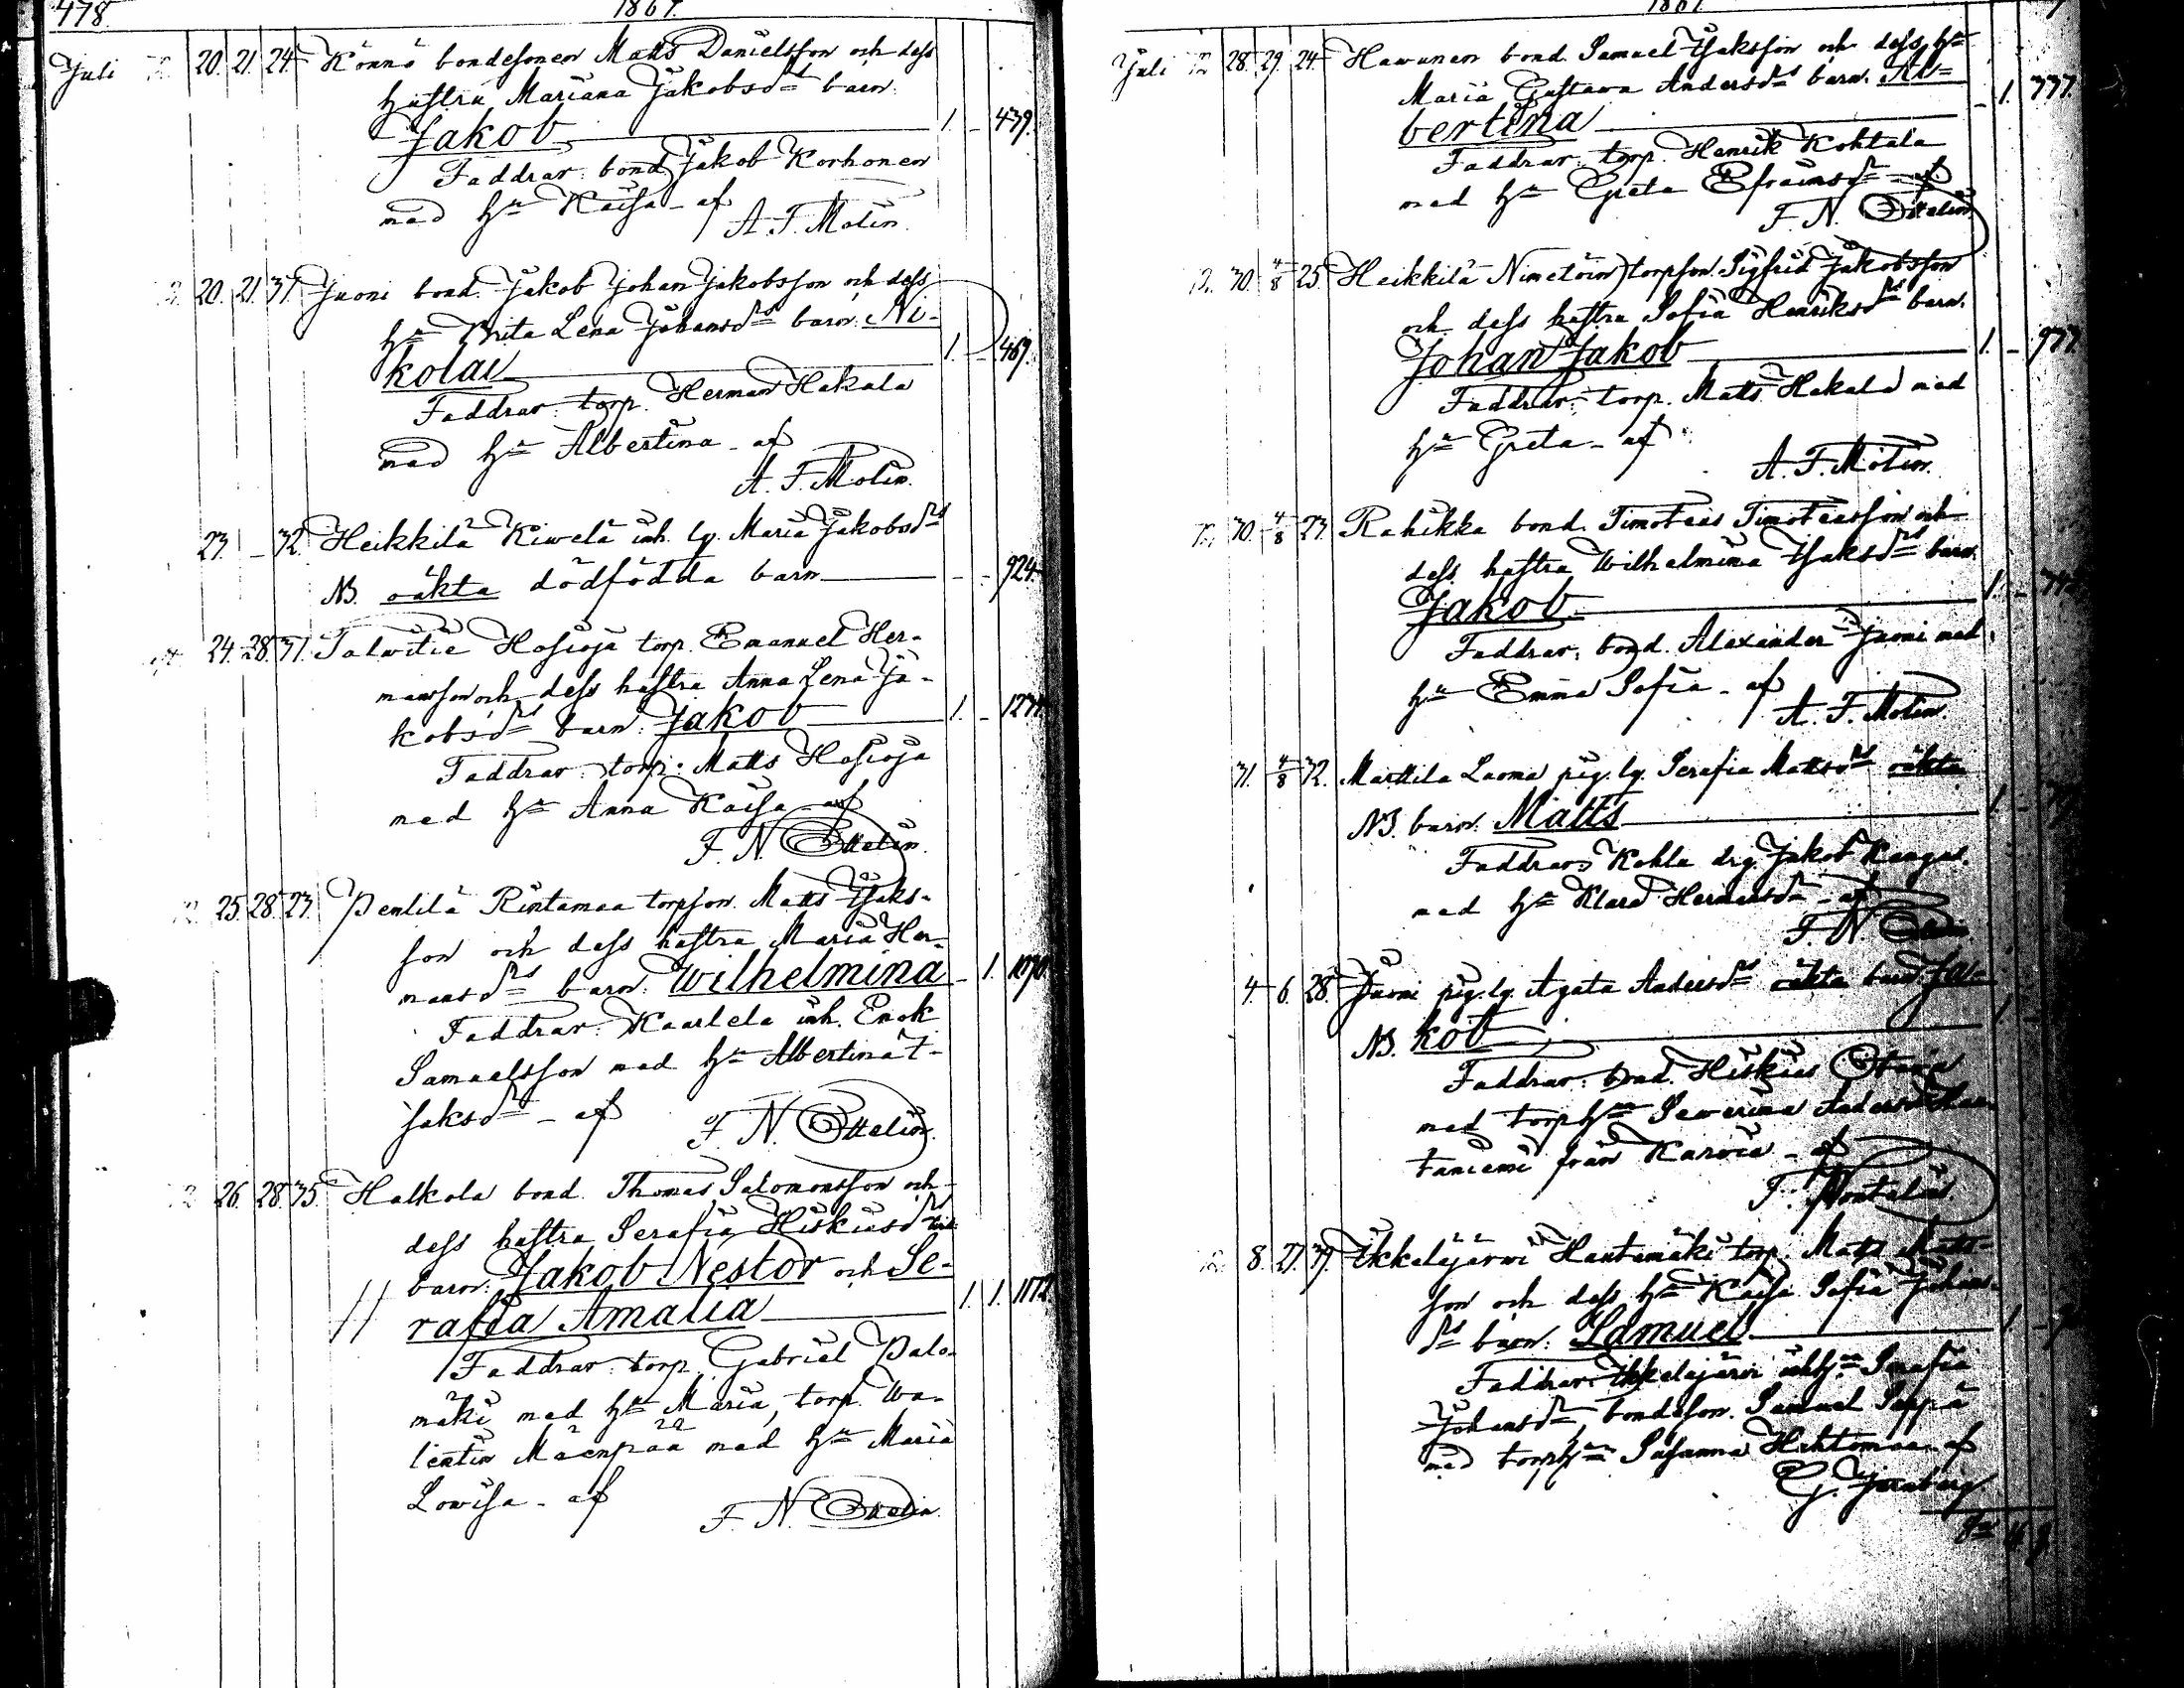 478.
1867.
Juli 20. 21. 24. Könnö bondesonen Matts Danielsson och dess
hustru Mariana Jakobsdrs barn:
Jakob 1. – 439.
Faddrar: bond. Jakob Korhonen
med hu Kaisa – af
A. F. Molin.
20. 21. 31. Juoni bond. Jakob Johan Jakobsson och dess
hu Brita Lena Johansdrs barn: Ni-
kolai 1. – 469.
Faddrar: torp. Herman Hakala
med hu Albertina – af
A. F. Molin.
23. – 32. Heikkilä Kiwelä inh. lg. Maria Jakobsdrs
NB. oäkta dödfödda barn – – 924.
24. 28. 31. Talwitie Hosioja torp. Emanuel Her-
mansson och dess hustru Anna Lena Ja-
kobsdrs barn: Jakob 1. –
Faddrar: torp. Matts Hosioja
med hu Anna Kaisa – af
F. N. Ottelin.
25. 28. 23. Pentilä Rintamaa torpson. Matts Isaks-
son och dess hustru Maria Her-
mansdrs barn: Wilhelmina – 1. 1070.
Faddrar: Kaarlela inh. Enok
Samuelsson med hu Albertina I-
saksdr – af F. N. Ottelin.
26. 28. 35. Halkola bond. Thomas Salomonsson och
dess hustru Serafia Hiskiasdrs
barn: Jakob Nestor och Se-
// rafia Amalia 1. 1. 1172.
Faddrar: torp. Gabriel Palo-
mäki med hu Maria, torp. Wa-
lentin Mäenpää med hu Maria
Lowisa – af F. N. Ottelin.
1867.
Juli 28. 29. 24. Hawunen bond. Samuel Isaksson och dess hu
Maria Gustava Andersdrs barn: Al-
bertina – 1. 777.
Faddrar: torp. Henrik Kohtala
med hu Greta Efraimsdr – af
F. N. Ottelin
30. 4/8 25. Heikkilä Nimetöin torpson. Sigfrid Jakobsson
och dess hustru Sofia Henriksdrs barn.
Johan Jakob 1. – 977.
Faddrar: torp. Matts Hakala med
hu Greta – af
A. F. Molin.
30. 4/8 23. Rahikka bond. Timoteus Timoteusson och
dess hustru Wilhelmina Isaksdrs barn.
Jakob 1. –
Faddrar: bond. Alexander Juoni med
hu Emma Sofia – af
A. F. Molin.
31. 4/8 32. Marttila Luoma pig. lg. Serafia Mattsdrs oäkta
NB. barn: Matts 1. –
Faddrar: Kohla drg. Jakob Kangas
med hu Klara Hermansdr – af
F. N. Ottelin.
4. 6. 28. Juoni pig. lg. Agata Andersdrs oäkta barn Ja-
NB. kob
Faddrar: bond. Hiskias
med torphu Sewerina Andersdr
taniemi från Karvia – af
F.
8. 27. 39. Ikkeläjärwi Hautamäki torp. Matts Matts-
son och dess hu Kaisa Sofia Johans-
drs barn: Samuel 1. –
Faddrar: Ikkeläjärvi inhhu Serafia
Johansdr, bondeson. Samuel Seppä
med torphu Susanna Hahtomaa – af
G.